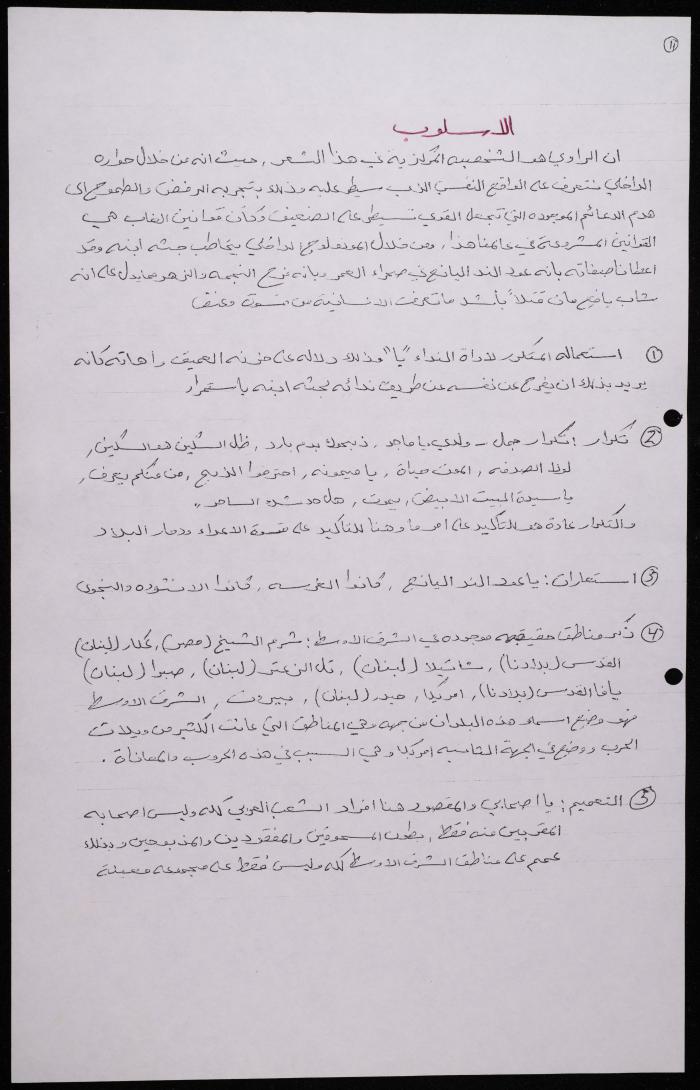 11
الاسلوب
ان الراوي هو الشخصيه المركزية في هذا الشعر, حيث انه من خلال حواره
الداخلي نتعرف على الواقع النفسي الذي سيطر عليه وذلك بتجربه الرفض والطموح الى
هدم الدعائم الموجوده التي تجعل القوي تسيطر على الضعيف وكأن قوانين الغاب هي
القوانين المشروعة في عالمنا هذا, ومن خلال المونولوج الداخلي يخاطب جثه ابنه وقد
اعطانا صفاته بأنه عود الند اليانع في صحراء العمر وبانه فرح النجمه والزهو مما يدل على انه
شاب يافع مات قتلاً بأشد ما تعرفت الانسانية من قسوة وعنف
① استعماله المتكرر لاداة النداء "يا" وذلك دلاله على حزنه العميق واهاته كانه
يريد بذلك ان يفرج عن نفسه عن طريق ندائه لجثه ابنه باستمرار
② تكرار : تكرار جمل - ولدي يا ماجد, ذبحوك بدم بارد, ظل السكين هو السكين,
لولا الصدفه, الموت حياة, يا ميمونه, احترفوا الذبح, من منكم يعرف,
يا سيدة البيت الابيض, بيروت, هل
والتكرار عادة هو للتأكيد على امر ما وهنا للتاكيد على قسوة الاعداء ودمار البلاد
③ استعارات : يا عود الند اليانع, كانوا الغرسه, كانوا الانشوده والنجوى
④ ذكر مناطق حقيقيه موجوده في الشرق الاوسط : شرم الشيخ (مصر), عكار (لبنان)
القدس (بلادنا), شاتيلا (لبنان), تل الزعتر (لبنان), صبرا (لبنان)
يافا القدس (بلادنا), امريكا, صيدا (لبنان), بيروت, الشرق الاوسط
فهو وضع اسماء هذه البلدان من جهه وهي المناطق التي عانت الكثير من ويلات
الحرب ووضع في الجهة المقابله امريكا وهي السبب في هذه الحروب والمعاناة.
⑤ التعميم : يا اصحابي والمقصود هنا افراد الشعب العربي كله وليس اصحابه
المقربين منه فقط, المسحوقين والمفقودين والمذبوحين وبذلك
عمم على مناطق الشرق الاوسط كله وليس فقط على مجموعه معينة